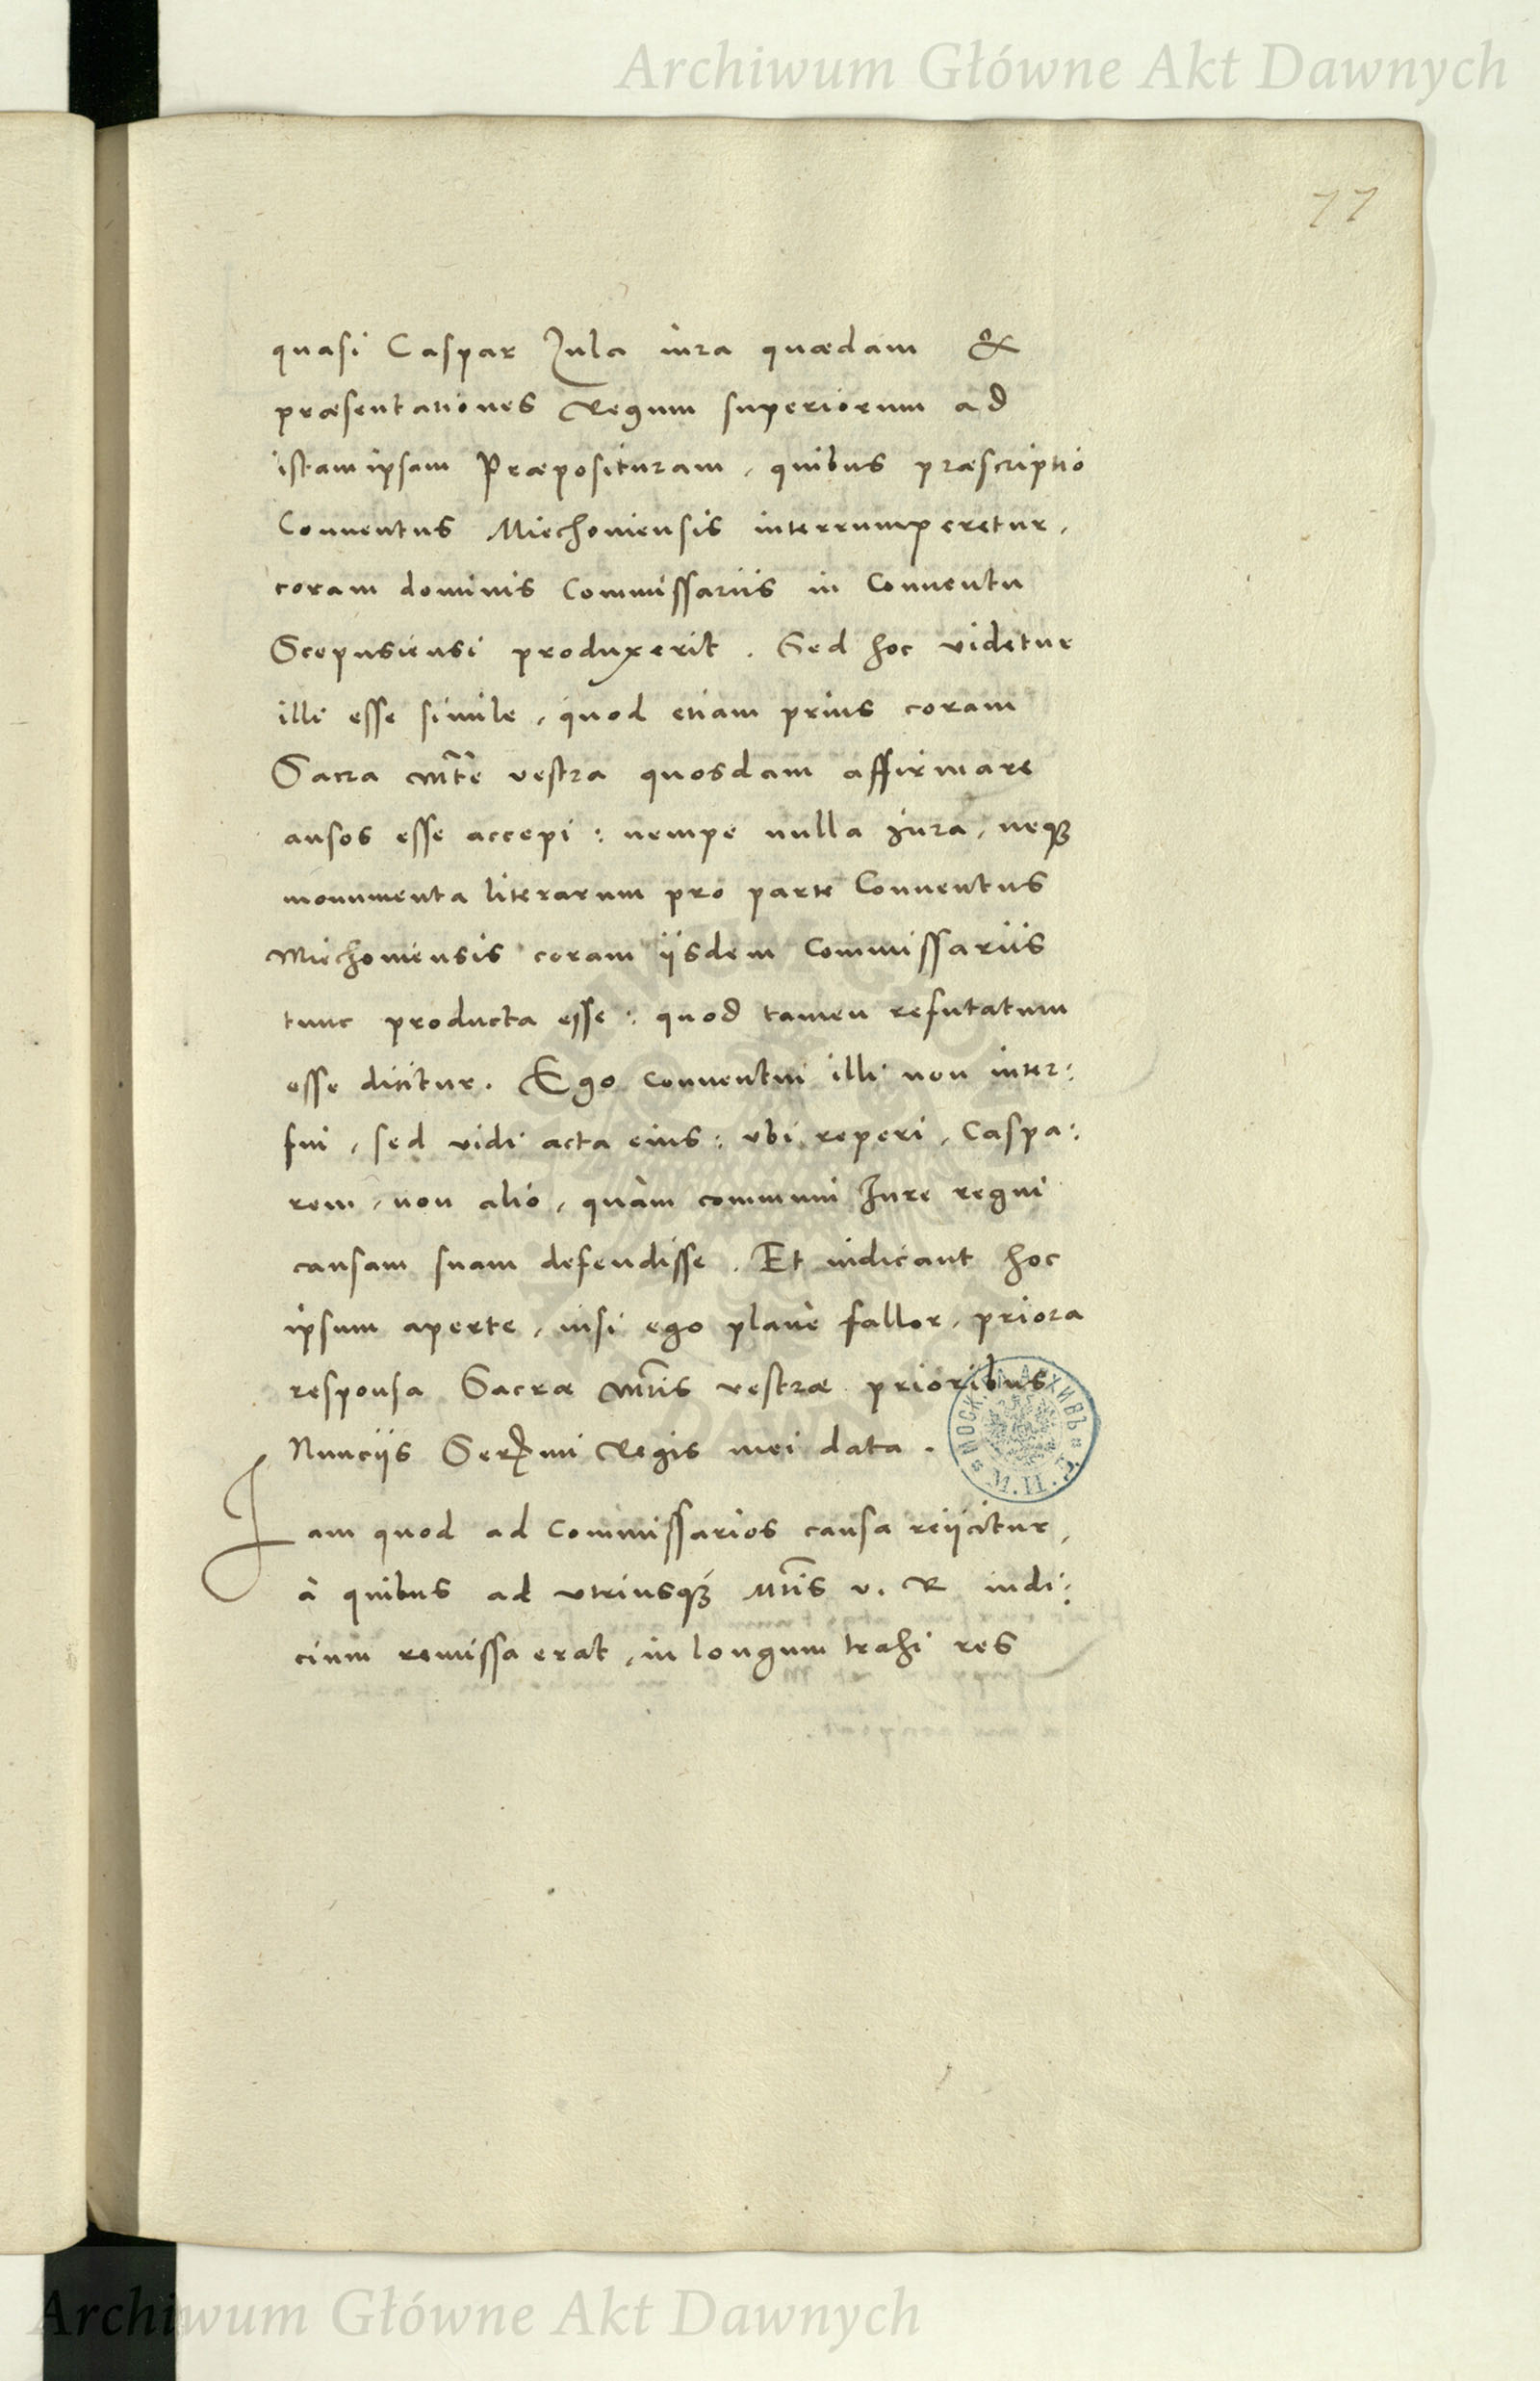 Archiwum Główne Akt Dawnych
77
quasi Caspar Jula iura quædam &
præsentationes Regum superiorum ad
istam ipsam Præposituram, quibus præscriptio
Conuentus Miechouiensis interrumperetur,
coram dominis Commissariis in Conuentu
Scepusiensi produxerit. Sed hoc videtur
illi esse simile, quod etiam prius coram
Sacra Mte vestra quosdam affirmare
ausos esse accepi: nempe nulla iura, neq;
monumenta literarum pro parte Conuentus
Miechouiensis coram iisdem Commissariis
tunc producta esse: quod tamen refutatum
esse dicitur. Ego conuentui illi non inter:
fui, sed vidi acta eius: vbi reperi, Caspa:
rem, non alio, quàm communi Iure regni
causam suam defendisse. Et indicant hoc
ipsum aperte, nisi ego planè fallor, priora
responsa Sacræ Mtis vestræ prioribus
Nunciis Sermi Regis mei data.
Iam quod ad Commissarios causa reiicitur,
à quibus ad vtriusq; Mtis v. R iudi:
cium remissa erat, in longum trahi res
Archiwum Główne Akt Dawnych